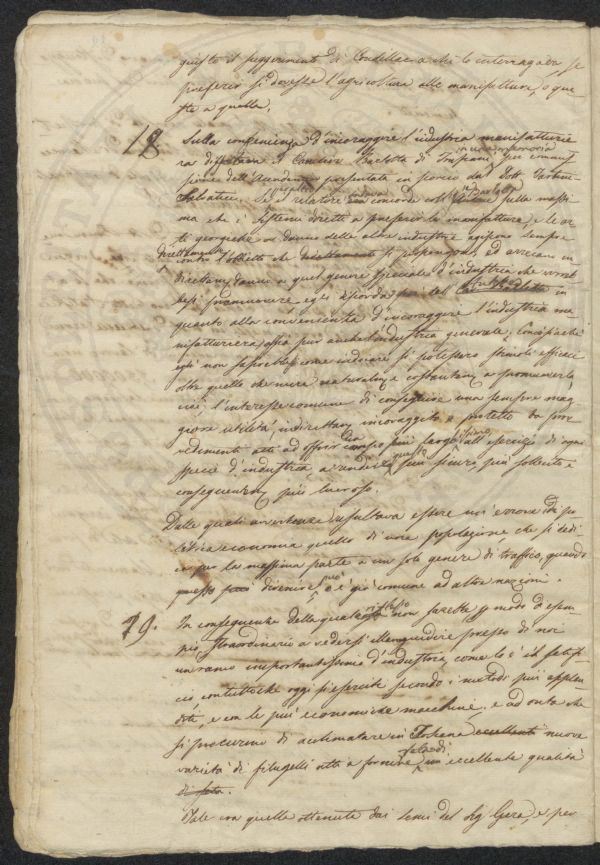 questo il suggerimento di Condillac a chi lo interrogava, se
preferir si dovesse l'agricoltura alle manifatture, o que
ste a quella.
18 Sulla convenienza d'incoraggire l'industria manifatturie
in una memoria
ra il Canc. Barlotta di Trapani, per commis
sione dell'Accademia presentata in pe dal Dott.
Se il relatore concorda coll' sulla massi
ma che i sistemi diretti a preferir le manifatture, e le ar
ti georgiche a danno delle altre industrie agiscono sempre
direttamente
contro l'obietto che si propongono, ed arrecano in
direttam. danno a quel genere speciale d'industria che vorreb
besi promuovere, egli in
quanto alla convenienza d'incoraggire l'industria ma
nifatturiera, ossia pur anche l'industria generale; Conciosiaché
egli non saprebbe come indicare si potessero stimoli efficaci
oltre quello che muove naturalm. e costantem. a promuoverla,
cioè, l'interesse comune di conseguire una sempre mag
giore utilità, indirettam. incoraggito e protetto da prov
vedimenti atti ad offrir campo più largo all'esercizio di ogni
specie d'industria, a renderne questo più sicuro, più sollecito e
conseguentem. più lucroso.
Dalle quali avvertenze risultava essere un errore di po
litica economia quello di una popolazione che si dedi
ca per la massima parte a un solo genere di traffico, quando
questo divenire, o è già comune ad altre nazioni.
19. In conseguenza della quale riflessio non sarebbe p. modo d'esem
pio, straordinario a vedersi illanguidire presso di noi
un ramo importantissimo d'industria, come lo è il setifi
cio, contuttoche oggi si eserciti secondo i metodi più applau
diti, e con le più economiche macchine; e ad onta che
si procurino di acclimatare in Toscana eccellenti nuove
varietà di filugelli atti a fornire seta di eccellente qualità
di seta.
Tale era quella ottenuta dai semi del Sig. Gera, e per